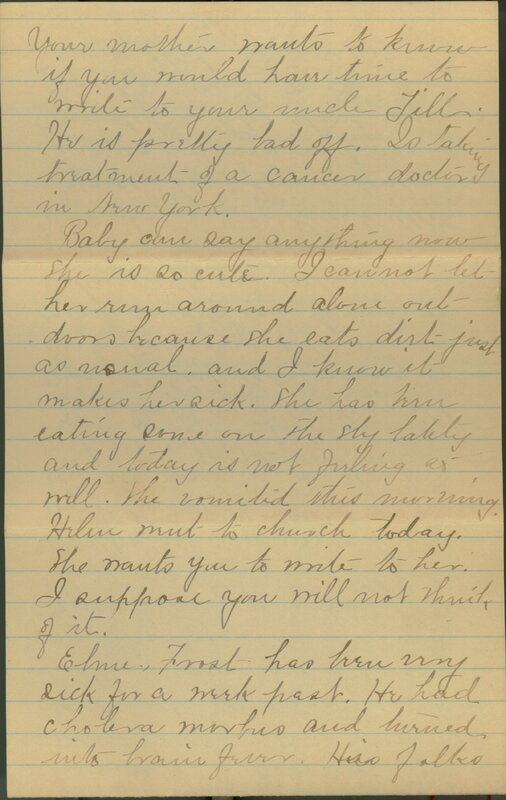 Your mother wants to know
if you would have time to
write to your uncle Till.
He is pretty bad off. Is taking
treatment of a cancer doctor
in New York.
Baby can say anything now
she is so cute. I can not let
her run around alone out-
doors because she eats dirt just
as usual. and I know it
makes her sick. She has been
eating some on the sly lately
and today is not feeling as
well. She vomited this morning.
Helen went to church today.
She wants you to write to her.
I suppose you will not think
of it.
Elmer Frost has been very
sick for a week past. He had
cholera morbus and turned
into brain fever. His folks